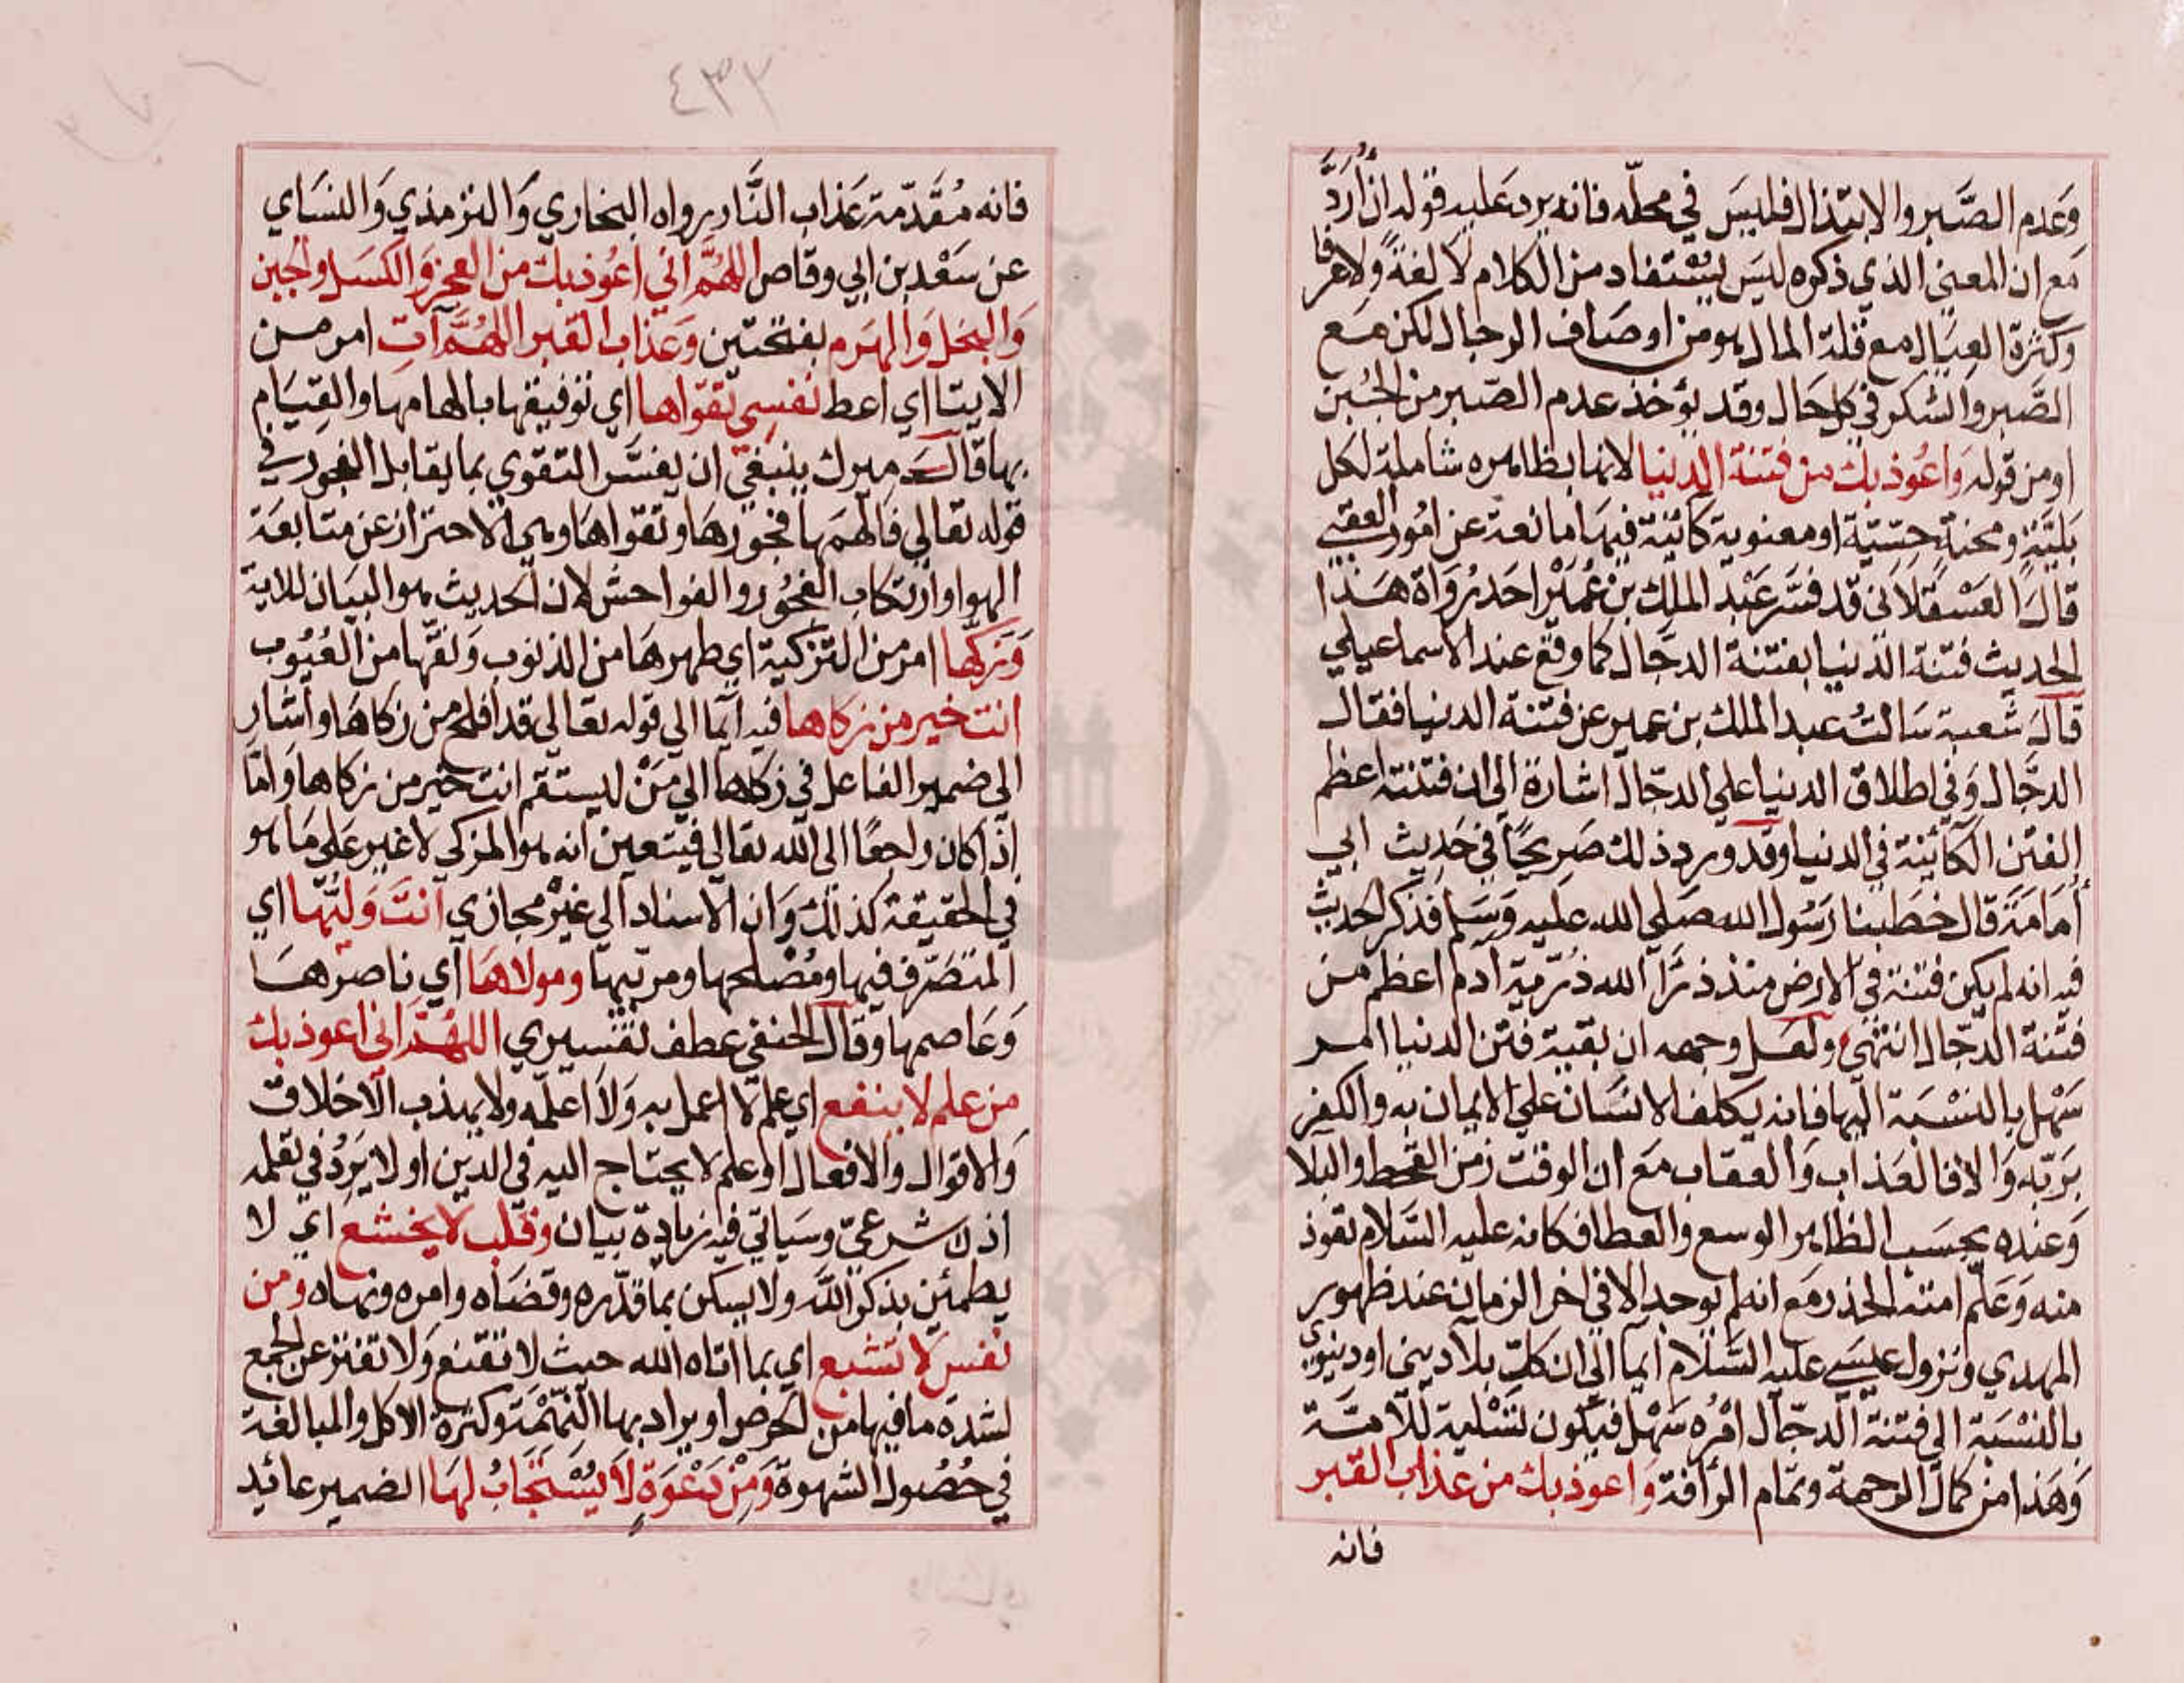 وَعَدم الصَّبر والابتذال فليسَ في محلّه فانه يرد عَليه قوله ان أُرَدَّ
مَع ان المعنى الذي ذكره ليسَ يُسْتفاد من الكلام لا لغةً ولا عرفا
وكثرة العيَال مع قلة المال هو من اوصَاف الرجال لكن مَع
الصَّبر والشكر في كل حَال وقد يؤخذ عدم الصّبر من الجُبن
او من قوله وَاعُوذ بك من فتنة الدنيا لانها بظاهره شاملة لكل
بَليَّةٍ ومحنةٍ حِسّيّة او معنوية كائنة فيهَا مانعة عن امُور العقبي
قالَ العَسْقلاني قد فسَّر عَبْد الملِك بن عُمَيْر احَد رُوَاة هَذا
الحديث فتنة الدنيا بفتنة الدجَّال كما وقع عند الاسماعيلي
قالَ شعبة سَالتُ عبد الملك بن عمير عن فتنة الدنيا فقال
الدجّال وَفي اطلاق الدنيا علي الدجّال اشارة الي ان فتنته اعظم
الفتن الكائنة في الدنيا وقد ورد ذلك صَريحًا في حَديث ابي
أمَامَة قال خطبنا رَسُول الله صَلي الله عليه وَسَلم فذكر الحديث
فيه انه لم يكن فتنة في الارض منذ ذرَأ الله ذرّية آدم اعظم من
فتنة الدجّال انتهى ولعَل وجهه ان بقية فتن الدنيا امر
سَهْل بالنسْبَة اليها فانه يكلف الانسَان علي الايمان به والكفر
برَبّه وَالا فالعَذاب وَالعقاب مَع ان الوقت زمن القحط والبلا
وَعنده بحسَب الظاهر الوسع والعطا فكانه عليه السَلام تعوذ
منه وَعَلم امته الحذر مَع انه لم يوجد الا في اخر الزمان عند ظهور
المهدي ونزول عيسَي عليه السَّلام ايما الي ان كل بلا ديني او دنيوي
بالنسْبَة الي فتنة الدجّال امْرُه سَهْل فيكون تسْلية للامّة
وَهَذا من كمال الرحمة وتمام الرأفة واعوذ بك من عذاب القبر
فانه
٤٣٣
فانه مُقَدّمة عَذاب النَّار رواه البخاري وَالترمذي وَالنسَاي
عن سَعْد بن ابي وقاص اللهُمَّ اني اعُوذ بك من العجز وَالكسَل والجبن
وَالبخل وَالهرَم بفتحتَين وَعَذاب القبر اللهُمَّ آتِ امر من
الايتا اي اعط نفسِي تقوَاها اي توفيقها بالهامها والقيَام
بها قال ميرك ينبغي ان يفسَّر التقوي بما يقابل الفجور في
قوله تعالي فَالهمَها فجورهَا وتقواهَا وهي الاحتراز عن متابعَة
الهوا وارتكاب الفجُور والفواحش لان الحديث هو البيَان للاية
وَزكّها امر من التزكية اي طهرهَا من الذنوب وَنقّها من العُيُوب
انت خير من زكاها فيه ايما الي قوله تعالي قد افلح من زكاهَا واشار
الي ضمير الفاعل في زكاها الي مَنْ ليستقم انت خير من زكاها وَامّا
اذا كان راجعًا الى الله تعالي فيتعين انه هو المزكي لا غير عَلي مَا هو
في الحقيقة كذلك وَان الاسناد الي غيْره مجازي انتَ وَليُّها اي
المتصَرّف فيها ومُصْلحها ومربّيها ومولاهَا اي ناصرهَا
وَعَاصمها وقال الحنفي عطف تفسيري اللهُمَّ اني اعوذ بك
من علم لا ينفع اي علم لا اعمل به وَلا اعلمه ولا يهذب الاخلاق
وَالاقوال والافعال او علم لا يحتاج اليه في الدين او لا يَرِدُ في تعلمه
اذن شرعيّ وسَياتي فيه زيادة بيان وقلب لا يخشع اي لا
يطمئن بذكر الله ولا يسكن بما قدّره وقضَاه وامره ونهاه ومن
نفس لا تشبع اي بما اتاه الله حيث لا تقنع وَلا تفتر عن الجمع
لشدة ما فيها من الحرص او يراد بها النَّهْمَة وكثرة الاكل والمبالغة
في حُصُول الشهوة وَمِنْ دَعْوَةٍ لَا يُسْتَجَابُ لهَا الضمير عائد